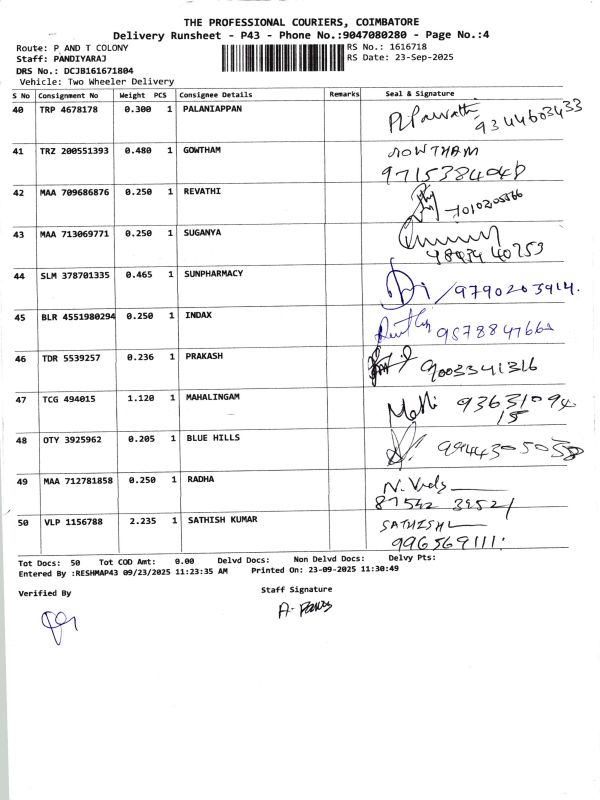 THE PROFESSIONAL COURIERS, COIMBATORE
Delivery Runsheet - P43 - Phone No.:9047080280 - Page No.:4
Route: P AND T COLONY
RS No.: 1616718
Staff: PANDIYARAJ
RS Date: 23-Sep-2025
DRS No.: DCJB161671804
Vehicle: Two Wheeler Delivery
S No Consignment No Weight PCS Consignee Details Remarks Seal & Signature
40 TRP 4678178 0.300 1 PALANIAPPAN 9344603433
41 TRZ 200551393 0.480 1 GOWTHAM GOWTHAM
9715384048
42 MAA 709686876 0.250 1 REVATHI
43 MAA 713069771 0.250 1 SUGANYA
44 SLM 378701335 0.465 1 SUNPHARMACY /9790203914.
45 BLR 4551980294 0.250 1 INDAX
46 TDR 5539257 0.236 1 PRAKASH 9003341316
47 TCG 494015 1.120 1 MAHALINGAM 93631094
15
48 OTY 3925962 0.205 1 BLUE HILLS
49 MAA 712781858 0.250 1 RADHA
87542 39521
50 VLP 1156788 2.235 1 SATHISH KUMAR SATHISH
Tot Docs: 50 Tot COD Amt: 0.00 Delvd Docs: Non Delvd Docs: Delvy Pts:
Entered By :RESHMAP43 09/23/2025 11:23:35 AM Printed On: 23-09-2025 11:30:49
Verified By Staff Signature